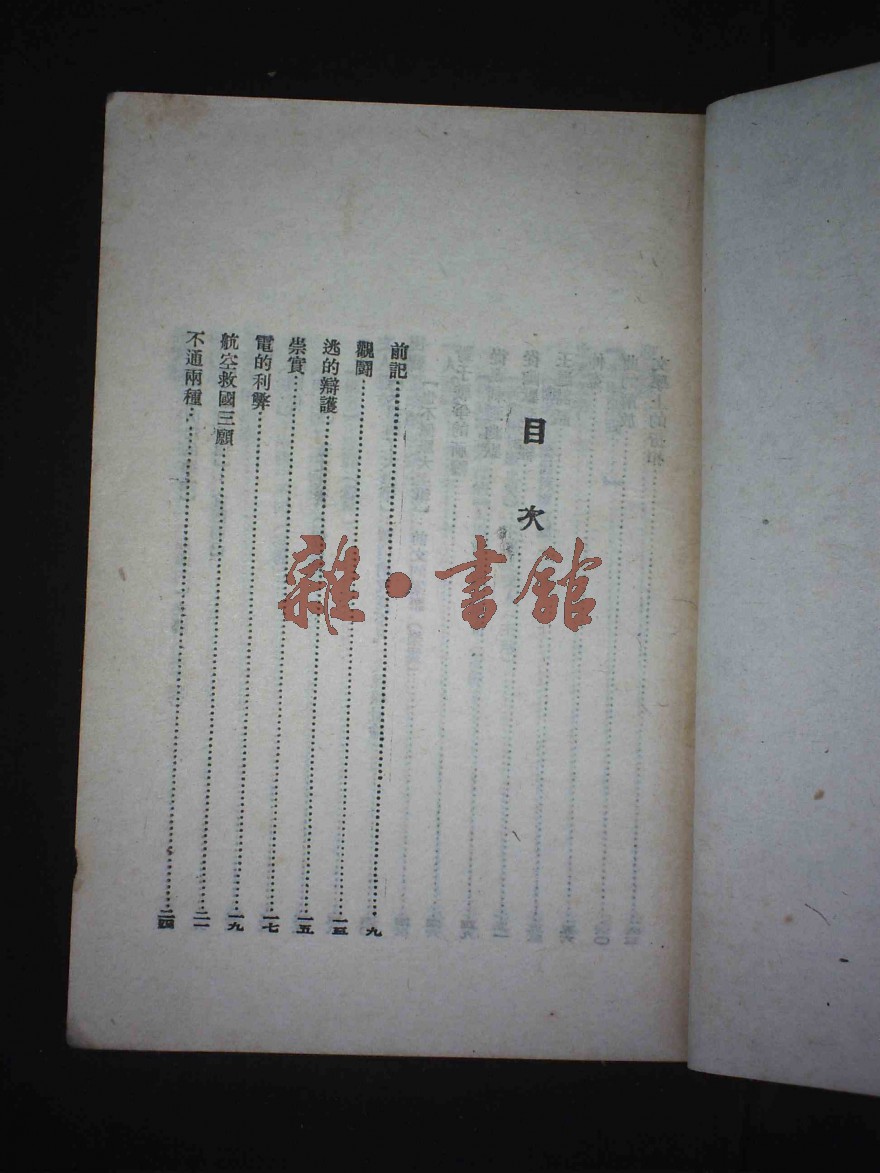 目次
前記……九
觀鬪……一三
逃的辯護……一五
崇實……一七
電的利弊……一九
航空救國三願……二一
不通兩種……二四
雜·書館